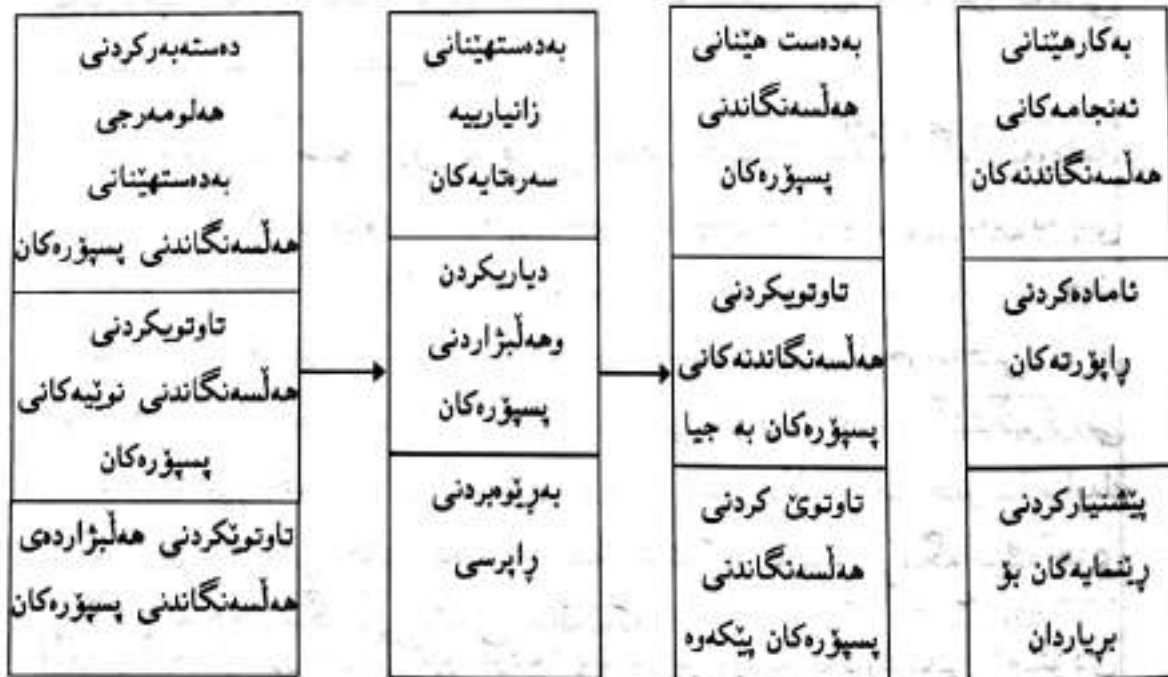 دەستەبەرکردنی
هەلومەرجی
بەدەستهێنانی
هەڵسەنگاندنی پسپۆرەکان
تاوتویکردنی
هەڵسەنگاندنی نوێیەکانی
پسپۆرەکان
تاوتوێکردنی هەڵبژاردەی
هەڵسەنگاندنی پسپۆرەکان
بەدەستهێنانی
زانیارییە
سەرەتایەکان
دیاریکردن
وهەڵبژاردنی
پسپۆرەکان
بەڕێوەبردنی
ڕاپرسی
بەدەست هێنانی
هەڵسەنگاندنی
پسپۆرەکان
تاوتویکردنی
هەڵسەنگاندنەکانی
پسپۆرەکان بە جیا
تاوتوێ کردنی
هەڵسەنگاندنی
پسپۆرەکان پێکەوە
بەکارهێنانی
ئەنجامەکانی
هەڵسەنگاندنەکان
ئامادەکردنی
ڕاپۆرتەکان
پێشنیارکردنی
ڕێنمایەکان بۆ
بڕیاردان